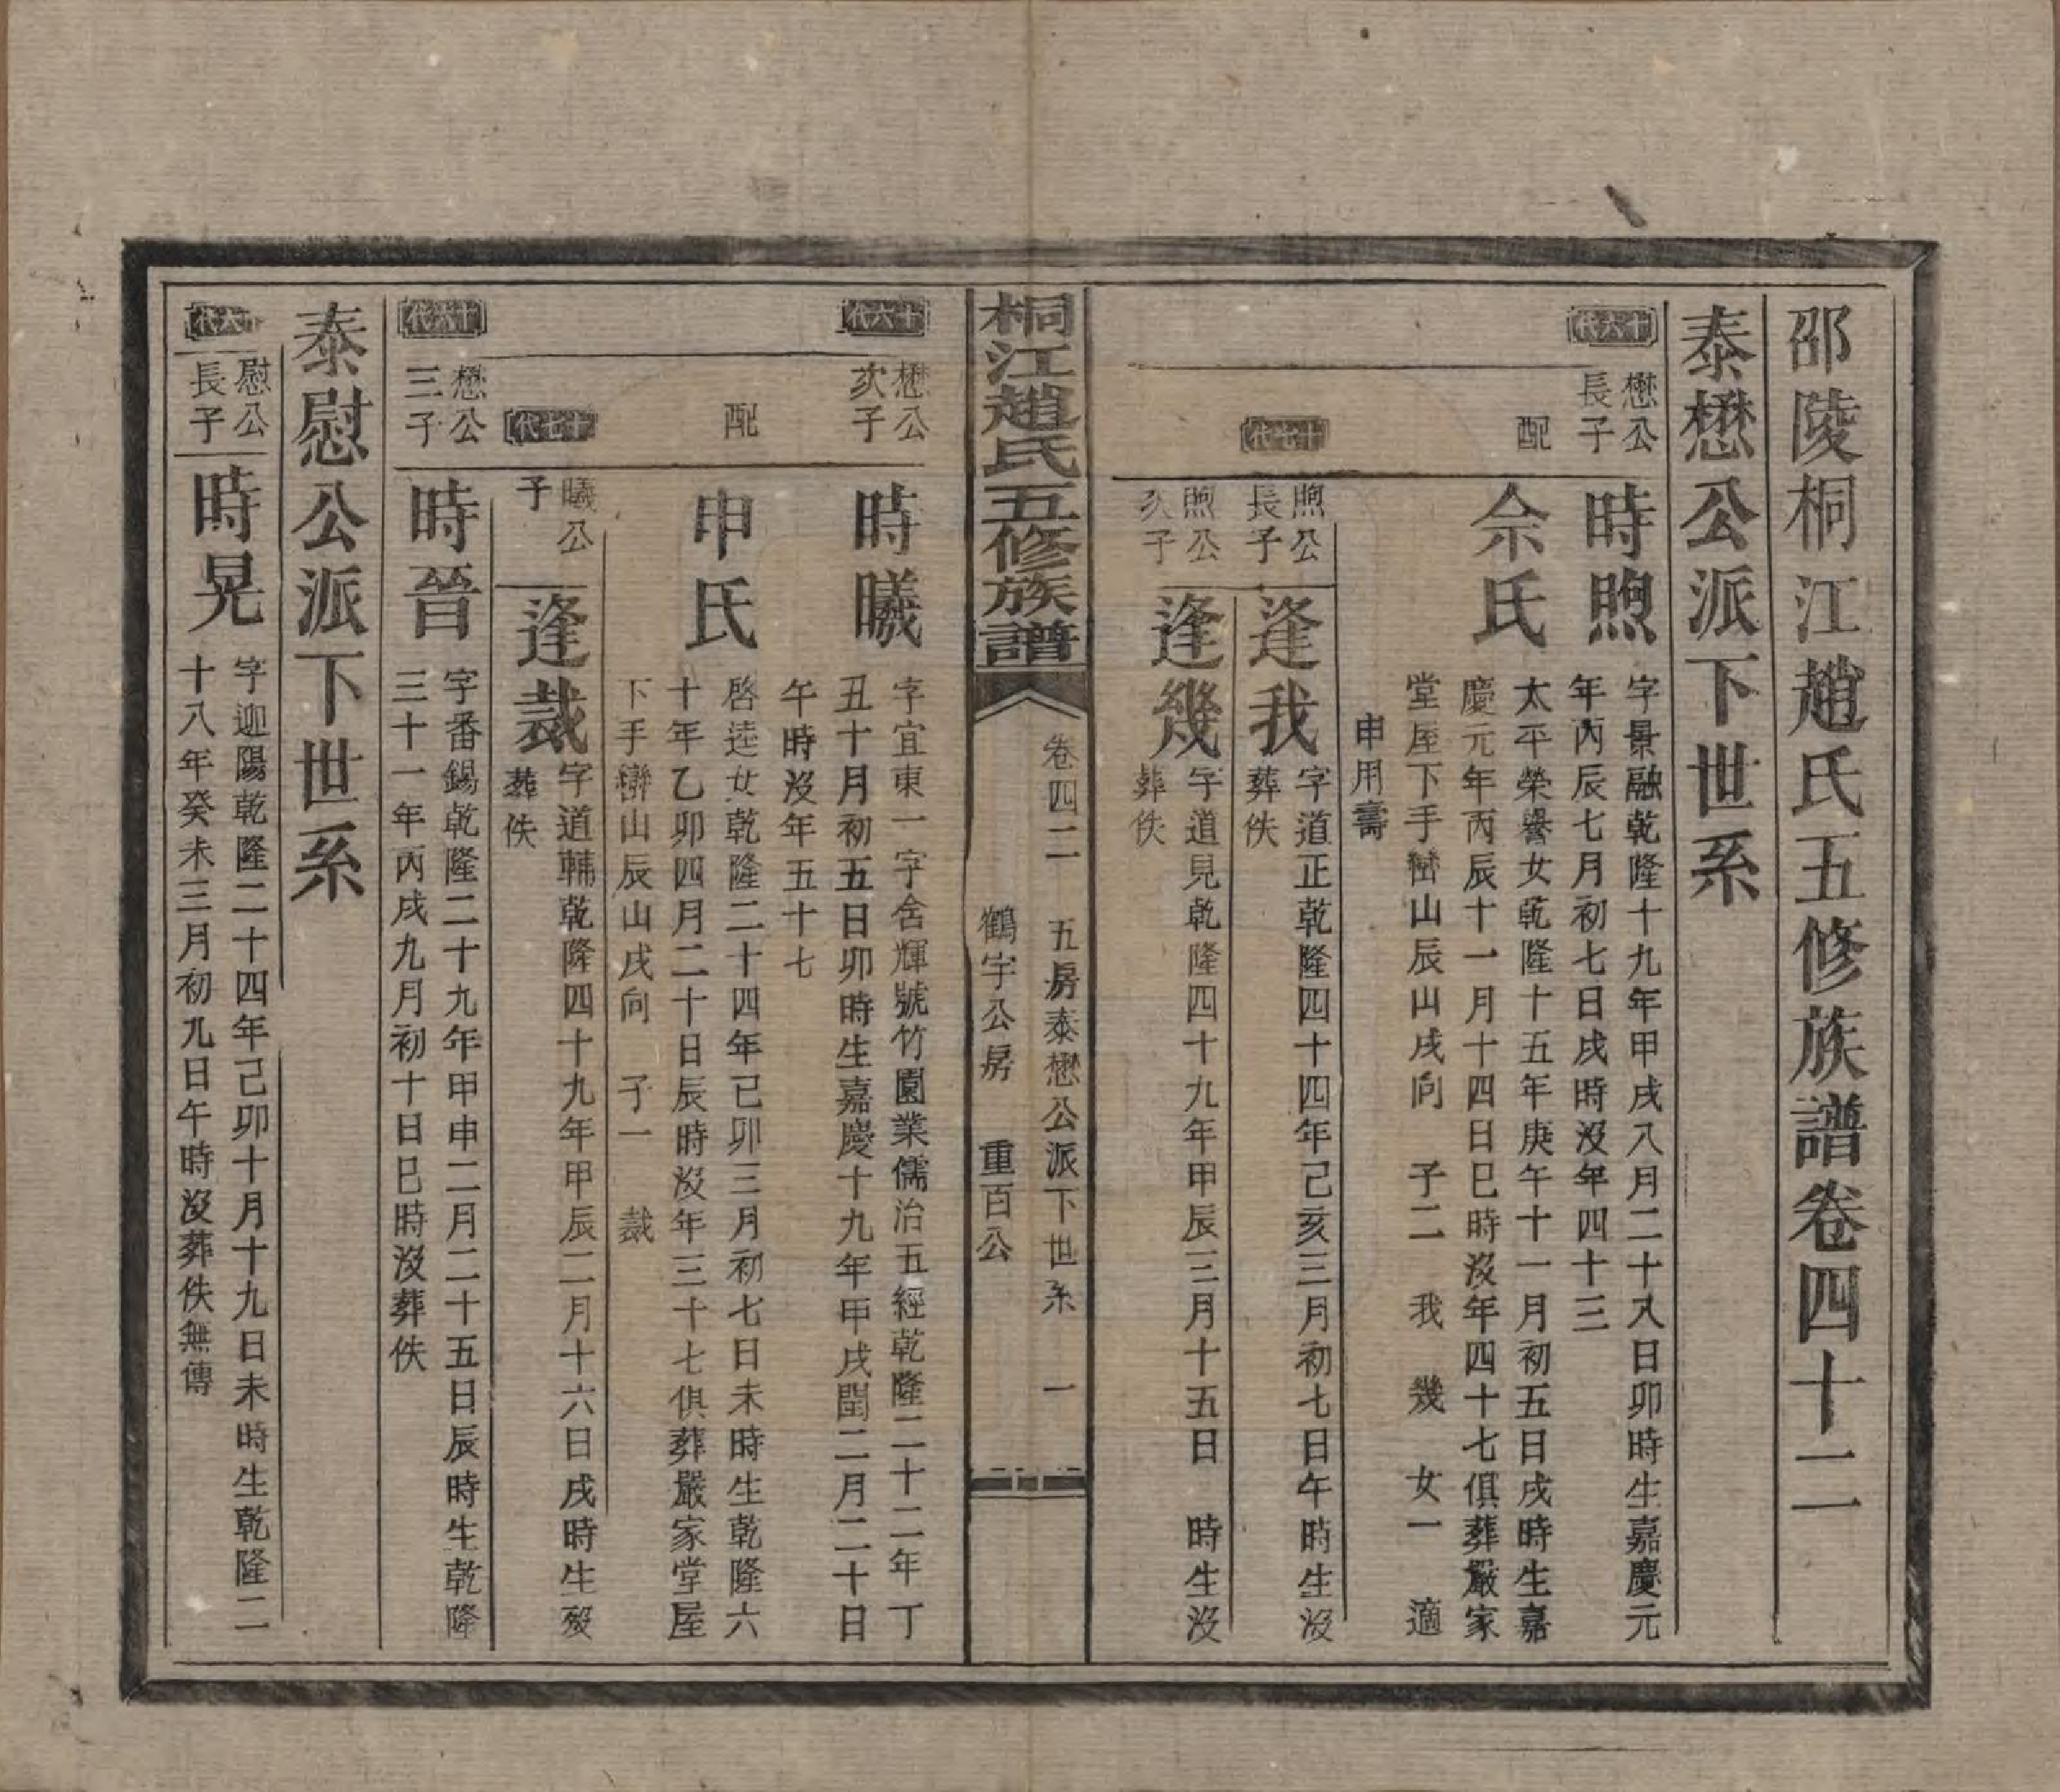 邵陵桐江趙氏五修族譜卷四十二
泰懋公派下世系
十六代
懋公
長子
時煦
字景融乾隆十九年甲戌八月二十八日卯時生嘉慶元
年丙辰七月初七日戌時沒年四十三
配
佘氏
太平榮譽女乾隆十五年庚午十一月初五日戌時生嘉
慶元年丙辰十一月十四日巳時沒年四十七俱葬嚴家
堂屋下手巒山辰山戌向 子二 我 幾 女一 適
申用壽
十七代
煦公
長子
逢我
字道正乾隆四十四年己亥三月初七日午時生沒
葬佚
煦公
次子
逢幾
字道見乾隆四十九年甲辰三月十五日 時生沒
葬佚
桐江趙氏五修族譜
卷四二 五房泰懋公派下世系 一
鶴宇公房 重百公
十六代
懋公
次子
時曦
字宜東一字含輝號竹園業儒治五經乾隆二十二年丁
丑十月初五日卯時生嘉慶十九年甲戌閏二月二十日
午時沒年五十七
配
申氏
啓逵女乾隆二十四年己卯三月初七日未時生乾隆六
十年乙卯四月二十日辰時沒年三十七俱葬嚴家堂屋
下手巒山辰山戌向 子一 裁
十七代
曦公
子
逢裁
字道輔乾隆四十九年甲辰二月十六日戌時生歿
葬佚
十六代
懋公
三子
時晉
字番錫乾隆二十九年甲申二月二十五日辰時生乾隆
三十一年丙戌九月初十日巳時沒葬佚
泰慰公派下世系
十六代
慰公
長子
時晃
字迎陽乾隆二十四年己卯十月十九日未時生乾隆二
十八年癸未三月初九日午時沒葬佚無傳